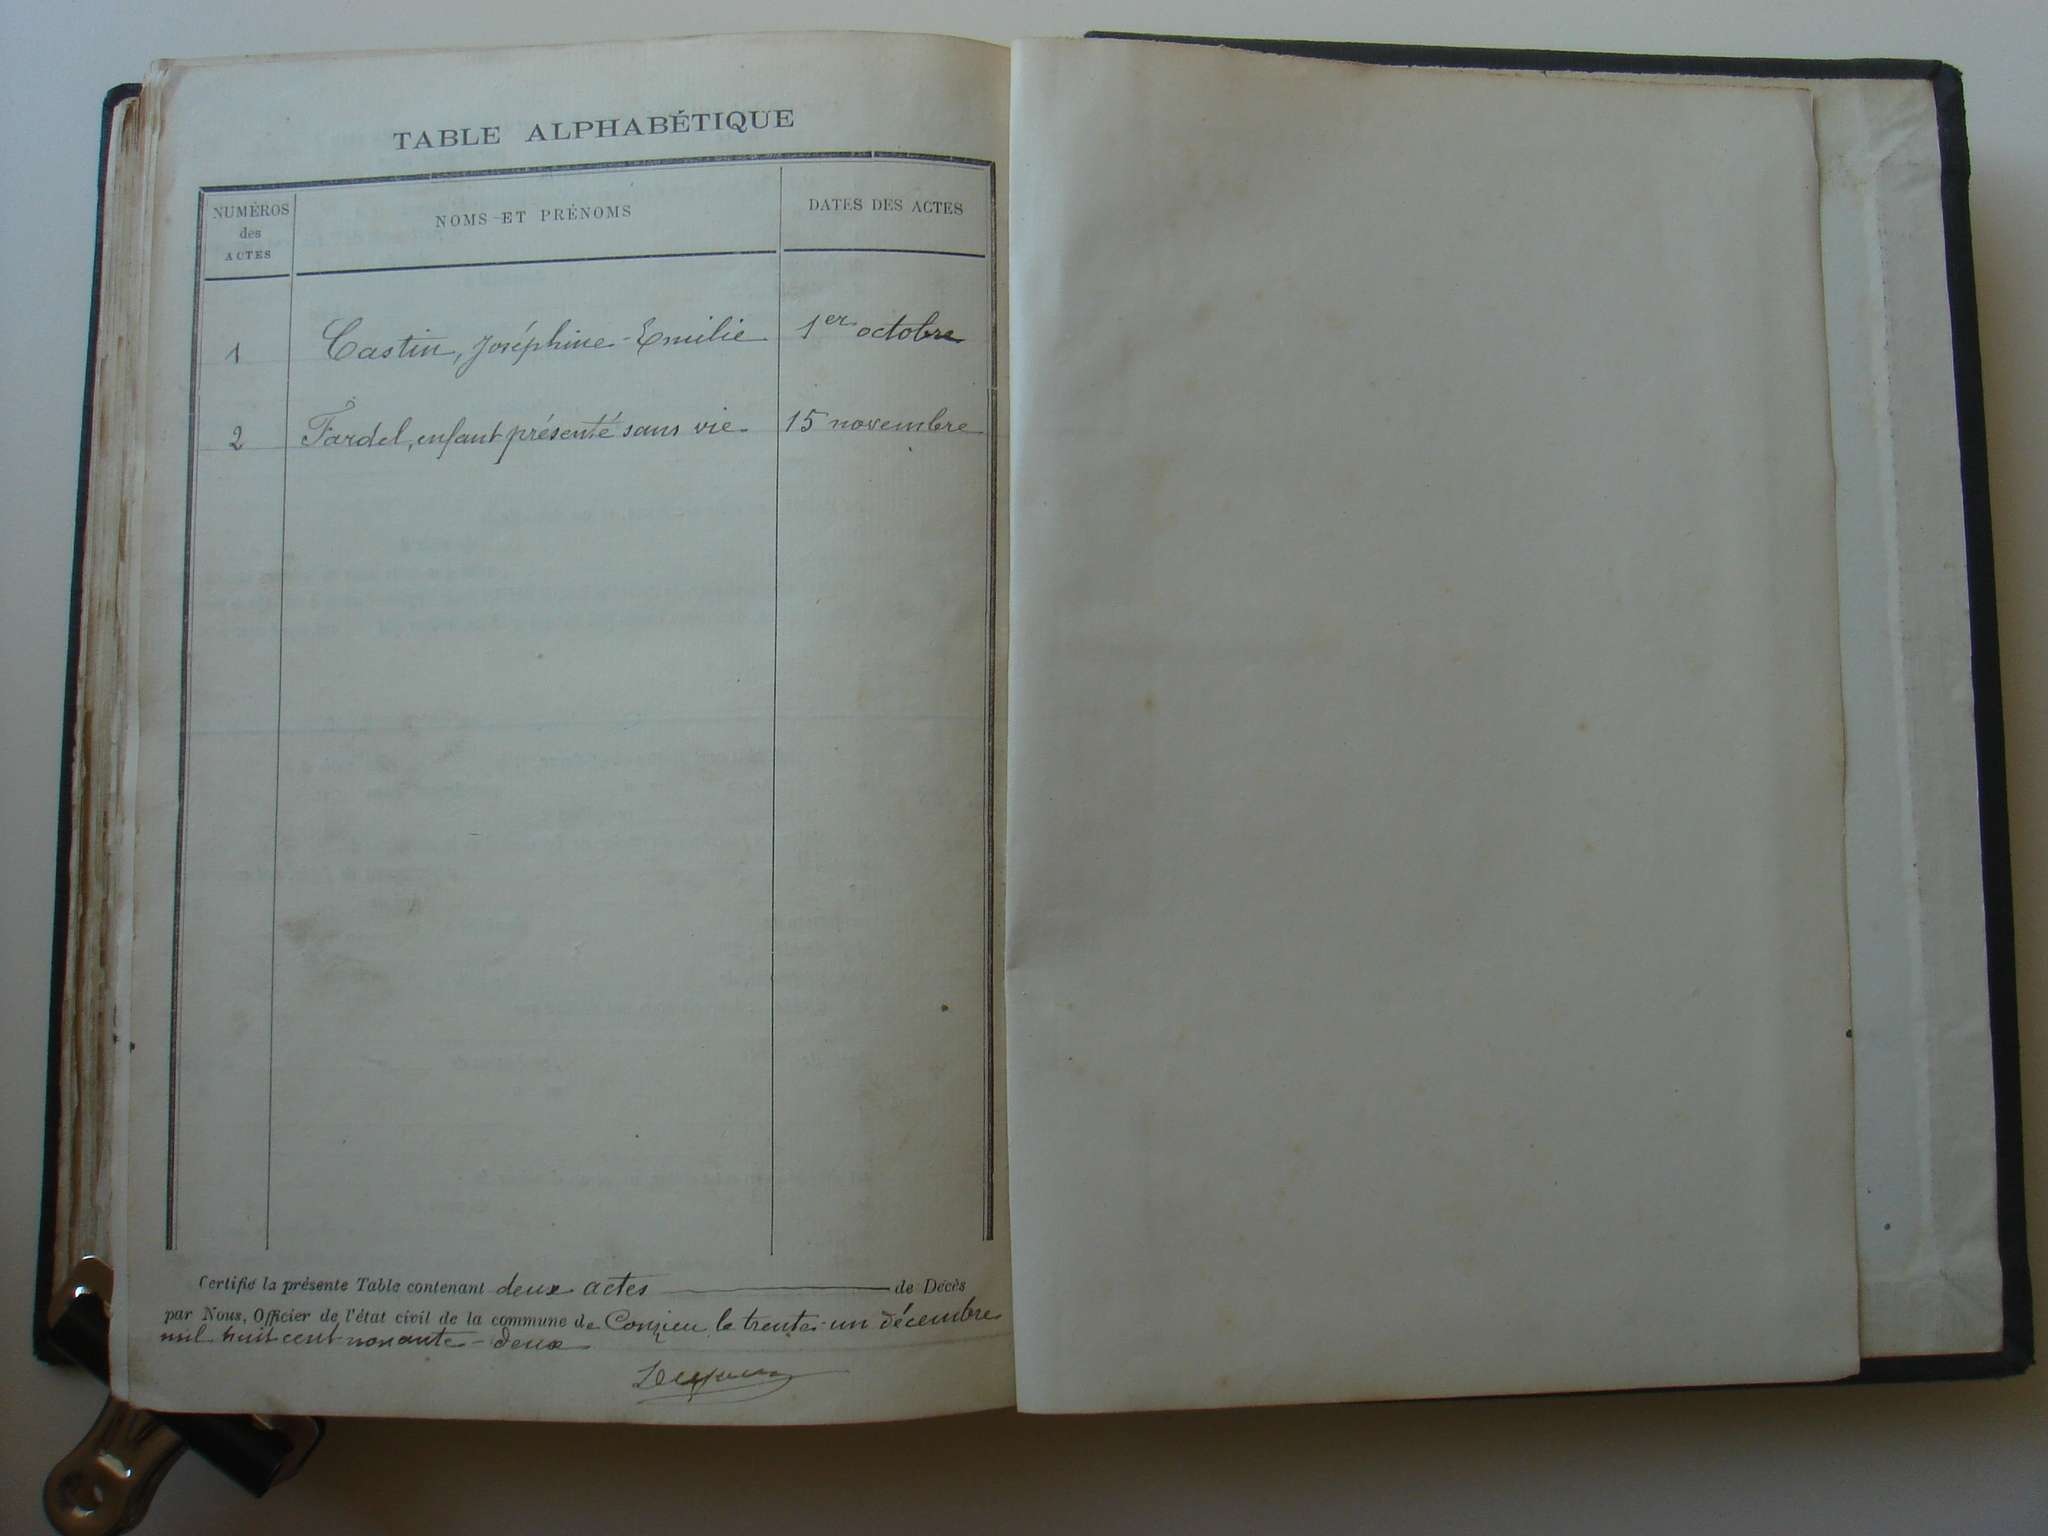 TABLE ALPHABÉTIQUE
NUMÉROS des ACTES
NOMS ET PRÉNOMS
DATES DES ACTES
1 Castin, Joséphine-Emilie 1er octobre
2 Fardel, enfant présenté sans vie. 15 novembre
Certifié la présente Table contenant deux actes de Décès
par Nous, Officier de l'état civil de la commune de Conzieu le trente-un décembre
mil huit cent nonante-deux